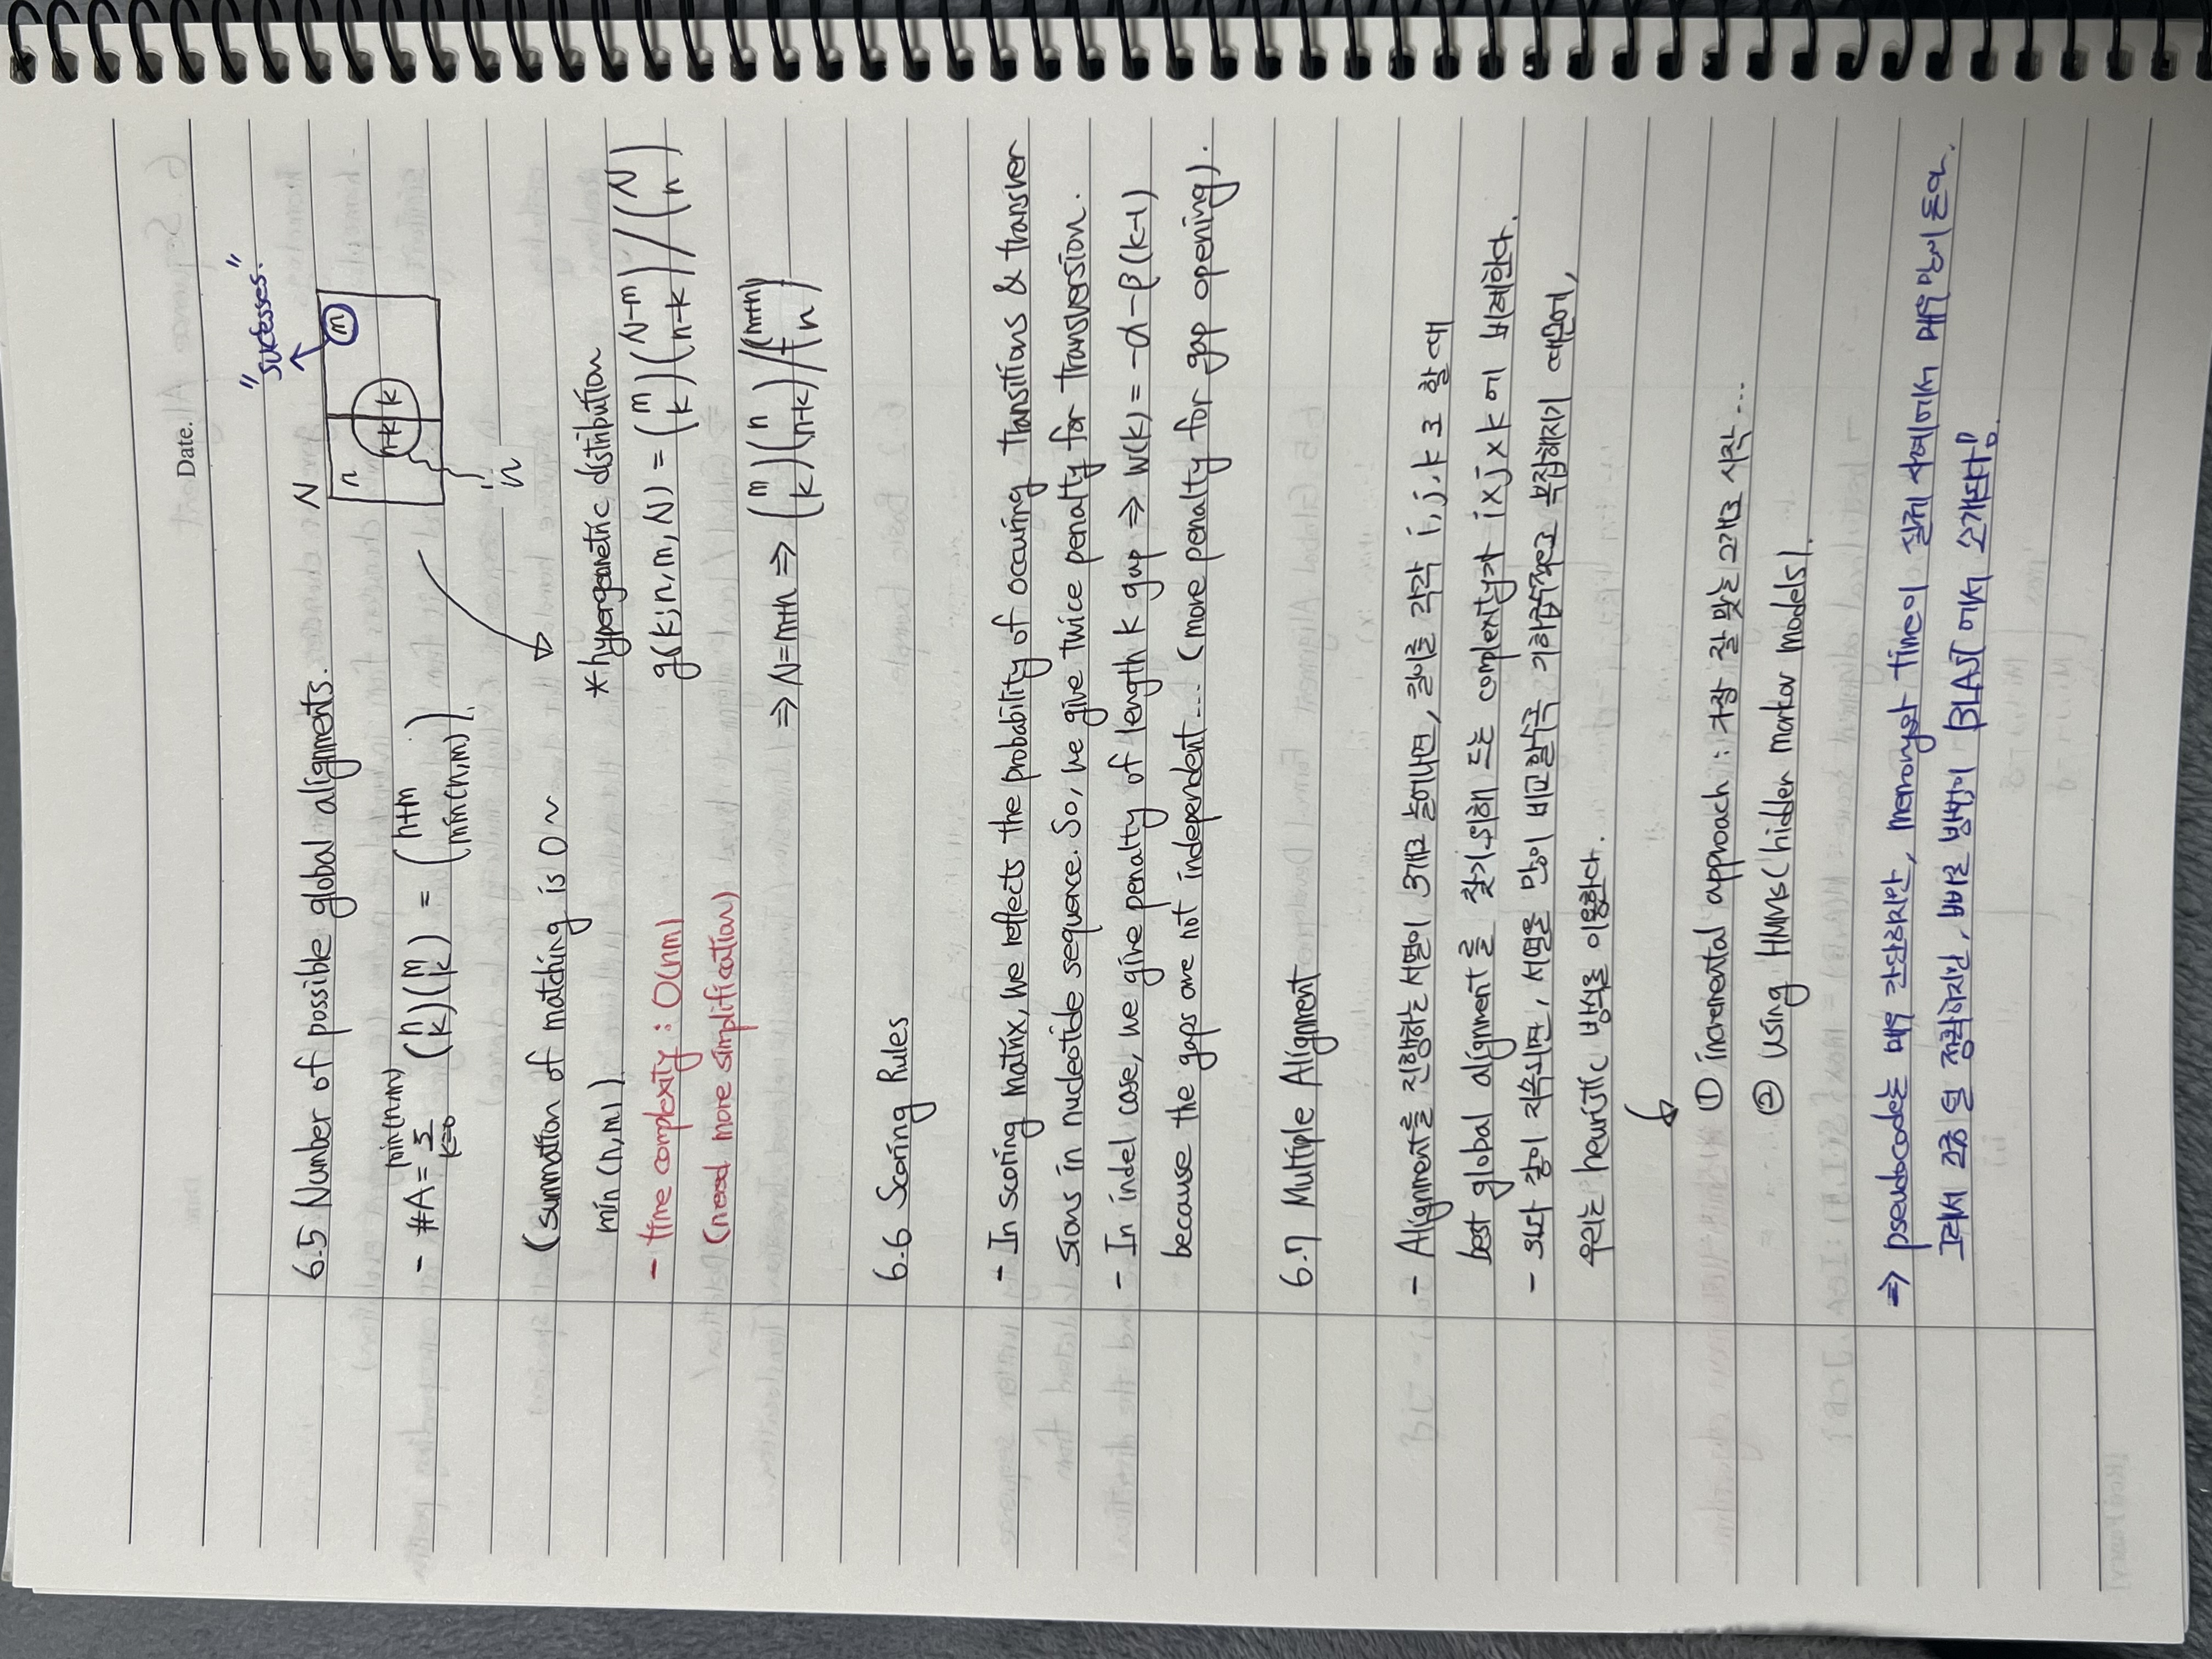 Date.
6.5 Number of possible global alignments.
"sucesses."
N
n
m
n-k k
n
- #A = min(n,m) Σ k=0 (n k)(m k) = (n+m min(n,m)).
(summation of matching is 0 ~
min(n,m))
- time complexity : O(nm)
(need more simplification)
* hypergeometric distribution
g(k; n, m, N) = (m k)(N-m n-k) / (N n)
⇒ N=m+n ⇒ (m k)(n n-k) / (m+n n)
6.6 Scoring Rules
- In scoring matrix, we reflects the probability of occuring transitions & transver
sions in nucleotide sequence. So, we give twice penalty for transversion.
- In indel case, we give penalty of length k gap ⇒ w(k) = -α-β(k-1)
because the gaps are not independent... (more penalty for gap opening).
6.7 Multiple Alignment
- Alignment를 진행하는 서열이 3개로 늘어나면, 길이를 각각 i, j, k 로 할 때
best global alignment를 찾기 위해 드는 complexity가 i x j x k 에 비례한다.
- 의와 같이 지속되면, 서열을 많이 비교할수록 기하급수적으로 복잡해지기 때문에,
우리는 heuristic 방식을 이용한다.
① incremental approach : 가장 잘 맞는 2개로 시작...
② using HMMs (hidden markov models).
⇒ pseudocode는 매우 간단하지만, memory와 time이 실제 사례에서 매우 많이 들어.
그래서 조금 덜 정확하지만, 훨씬 빠른 방법이 BLAST에서 소개되었음.